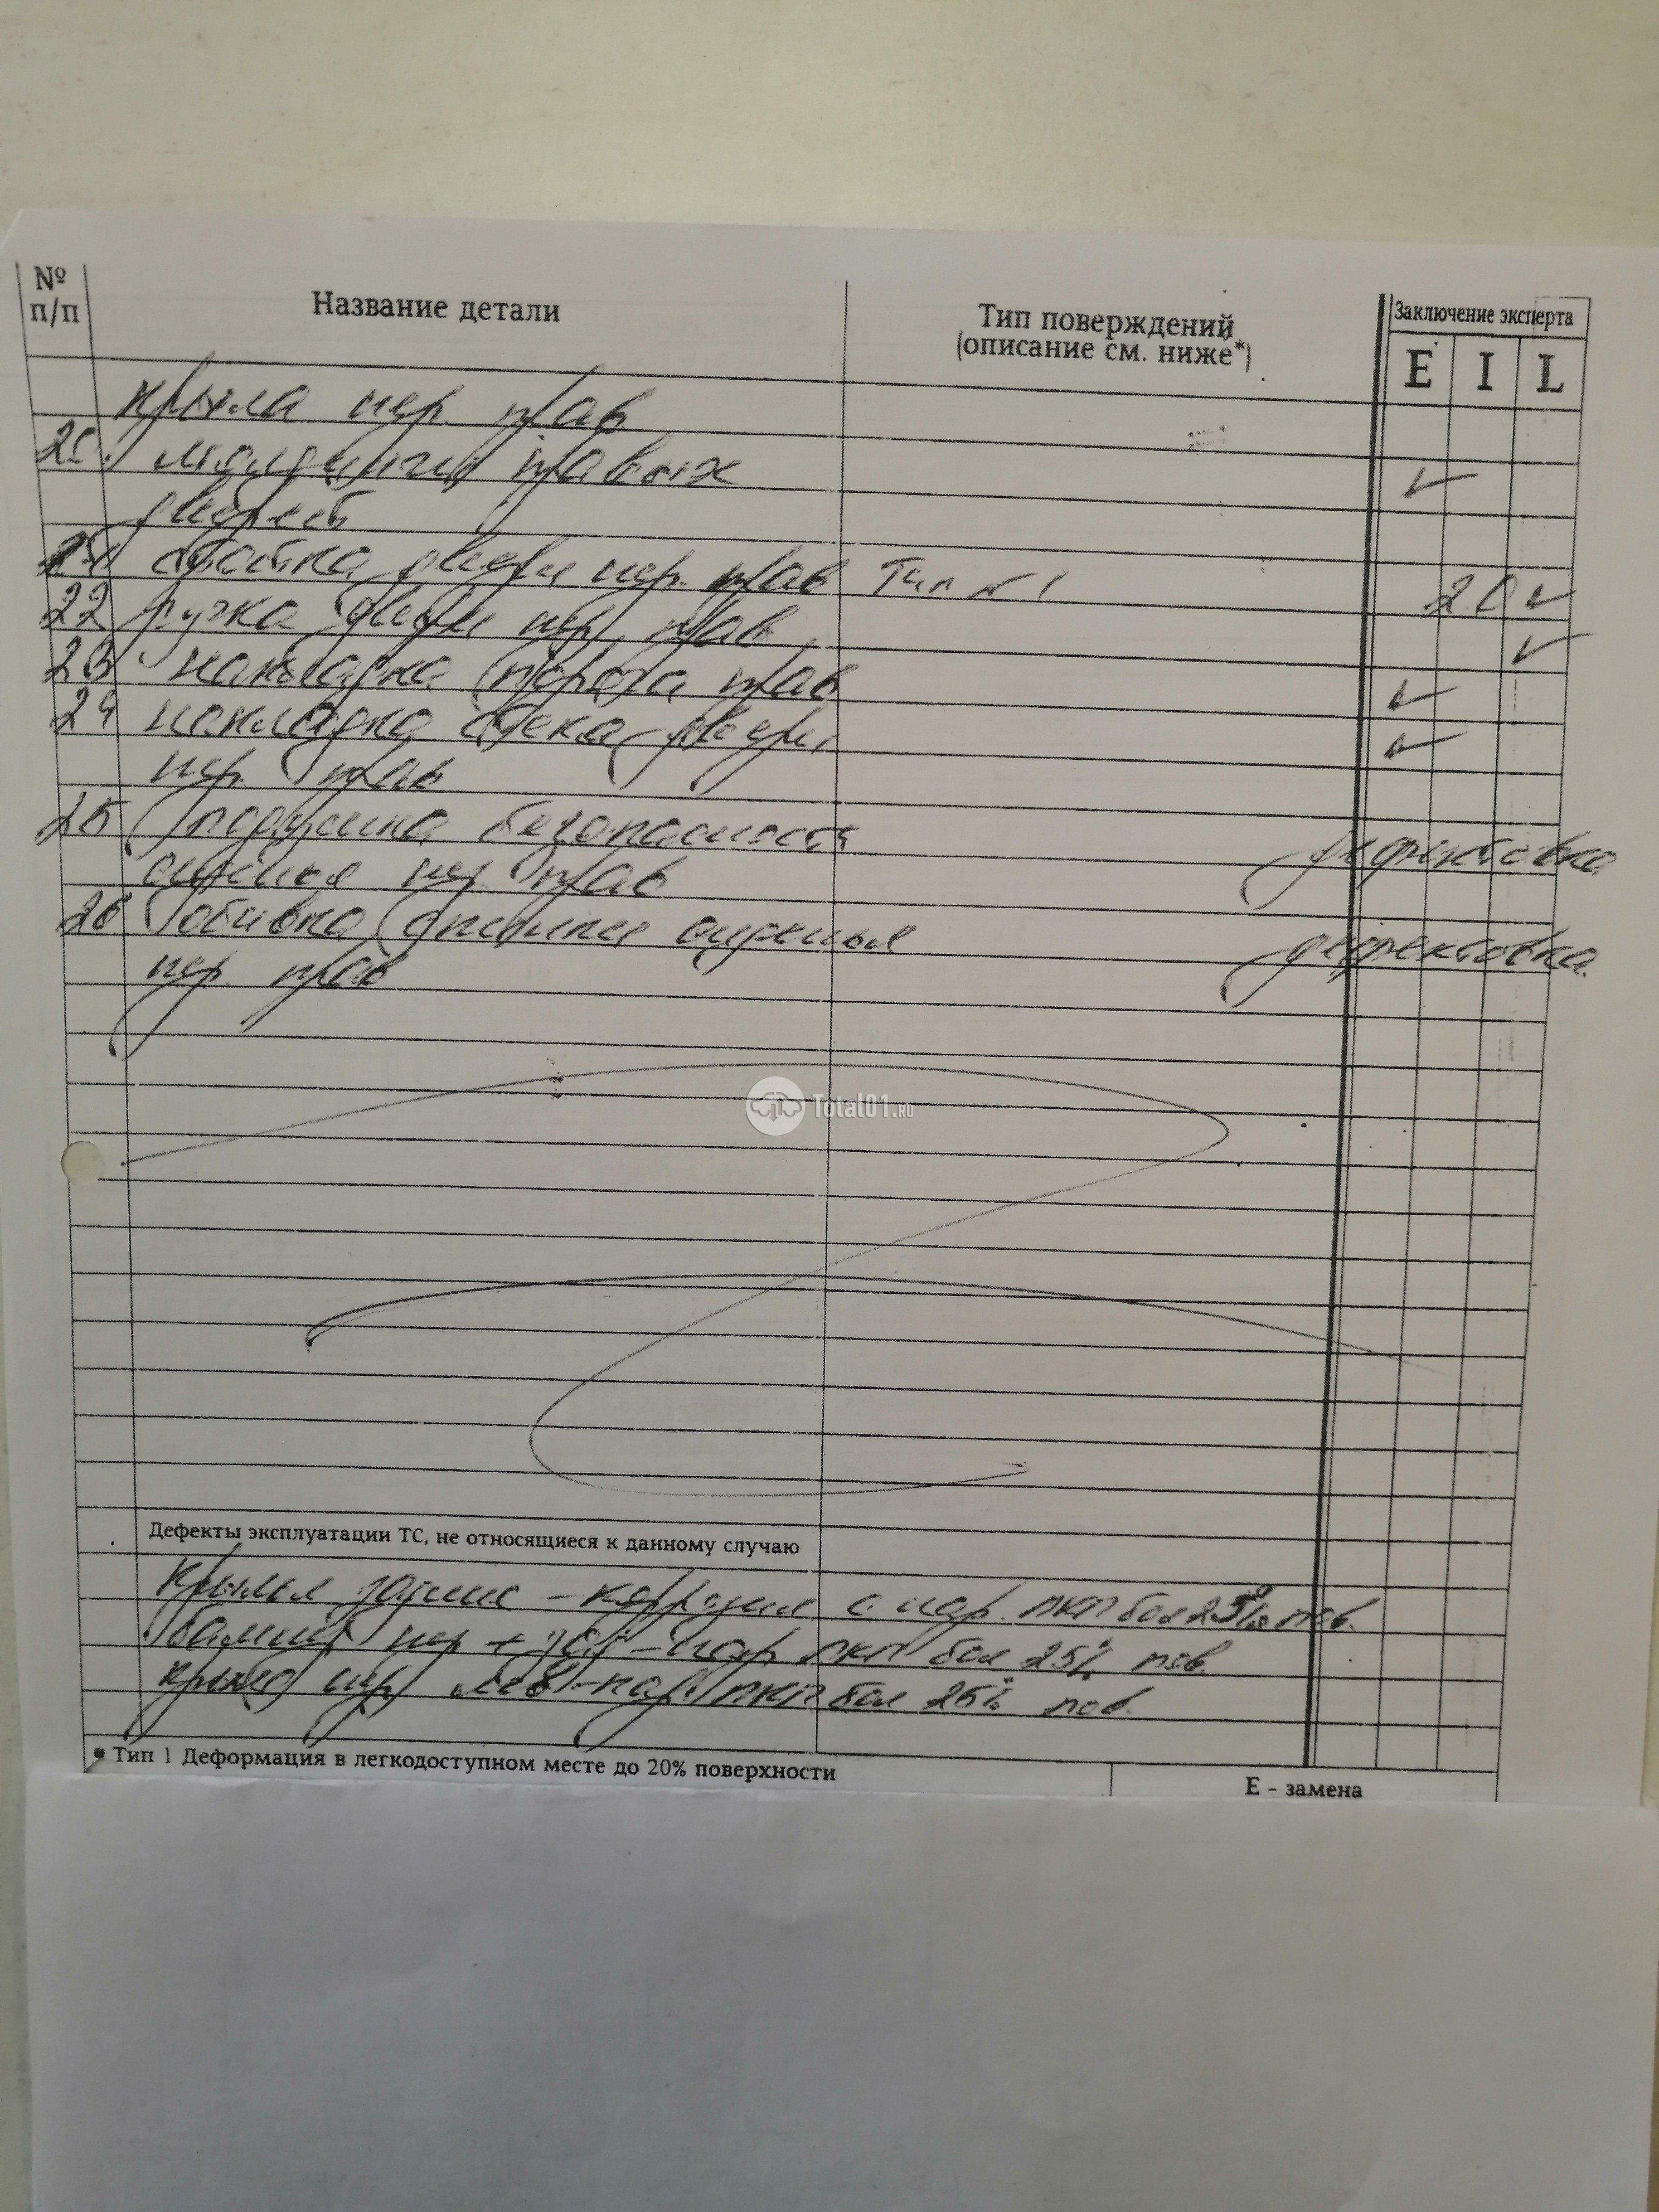 № п/п
Название детали
Тип поверждений
(описание см. ниже*)
Заключение эксперта
E I L
крыла пер. прав
20. молдинги правых
дверей
21 стойка двери пер. прав Тип №1 2.0 ✓
22 ручка двери пер. прав
23 накладка порога прав
24 накладка стека двери
пер. прав
25 подушка безопасности дефектовка
сиденья пер. прав
26 обивка спинки сиденья дефектовка
пер прав
Total01.RU
Дефекты эксплуатации ТС, не относящиеся к данному случаю
Крылья задние - коррозия с нар. ЛКП бол 25% пов.
бампер пер + зад - нар ЛКП бол 25% пов.
крыло пер лев - нар. ЛКП бол 25% пов.
• Тип 1 Деформация в легкодоступном месте до 20% поверхности
E - замена